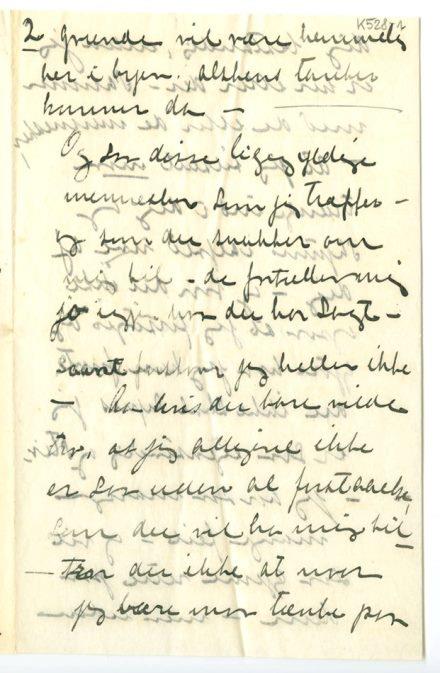 K528 r
2 grunde vil være hemmelig
her i byen, alskens tanker
kommer da —
Og saa disse ligegyldige
mennesker som jeg træffer —
og som du snakker om
mig til – de fortæller mig
jo igjen hva du har sagt –
Saant forstaar jeg heller ikke
— Aa hvis du bare vilde
tro, at jeg alligevel ikke
er saa uden al forstaaelse,
som du vil ha mig til
— Tror du ikke at naar
jeg bare maa tænke paa